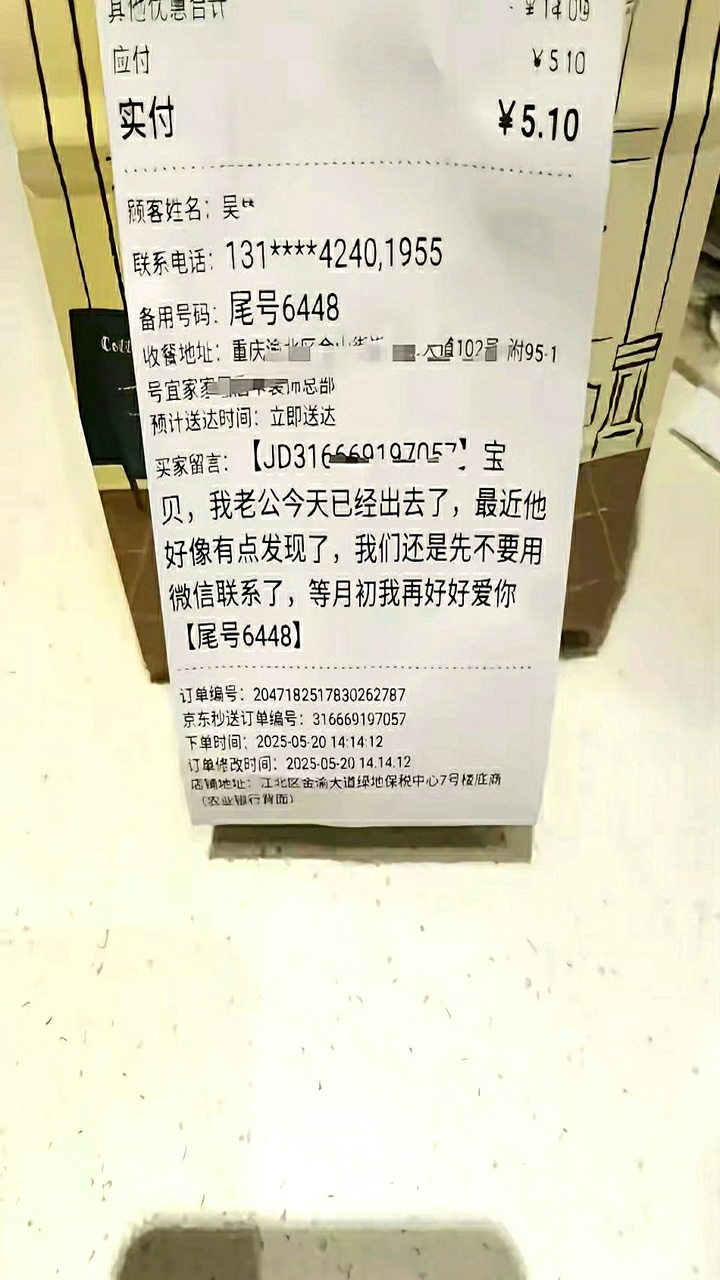 其他优惠合计 -¥14.09
应付 ¥5.10
实付 ¥5.10
顾客姓名：吴**
联系电话：131****4240,1955
备用号码：尾号6448
收餐地址：重庆渝北区金山街 大道102号 附95-1
号宜家 装饰总部
预计送达时间：立即送达
买家留言：【JD316669197057】宝
贝，我老公今天已经出去了，最近他
好像有点发现了，我们还是先不要用
微信联系了，等月初我再好好爱你
【尾号6448】
订单编号：2047182517830262787
京东秒送订单编号：316669197057
下单时间：2025-05-20 14:14:12
订单修改时间：2025-05-20 14.14.12
店铺地址：江北区金渝大道绿地保税中心7号楼底商
（农业银行背面）